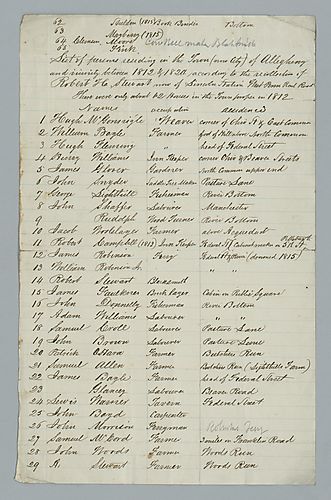 62 Sheldon (1815) Book Binder Bottom
63 Mayberry (1815)
64 Coleman Moore
65 Fink
List of persons residing in the Town (now City) of Allegheny
and vicinity between 1812 & 1820, according to the recollection of
Robert Hs. Stewart now of Lincoln Station West Penn Rail Road
There were only about 20 Houses in the Town proper in 1812
Names occupation Residence
1 Hugh McGonnigle Weaver corner of Ohio St & East Common
2 William Bogle Farmer foot of Hill above North Common
3 Hugh Fleming " head of Federal Street
4 George Williams Inn Keeper corner Ohio & Beaver Streets
5 James Glover Gardener North Common upper end
6 John Snyder Saddle Tree Maker Pasture Lane
7 George Lighthill Fisherman River Bottom
8 John Shaffer Laborer Manchester
9 Rudolph Wood Turner River Bottom
10 Jacob Woolslager Farmer above Aqueduct
11 Robert Campbell (1813) Inn Keeper Federal St
12 James Robinson Ferry Federal St & River (drowned 1815)
13 William Robinson Jr. " "
14 Robert Stewart Blacksmith
15 James Faulkner Brick layer Cabin on Public Square
16 John Donnelly Fisherman River Bottom
17 Adam Williams Laborer
18 Samuel Coole Laborer Pasture Lane
19 John Brown Laborer Pasture Lane
20 Patrick O'Hara Farmer Butchers Run
21 Samuel Allen Farmer Butchers Run (Lighthill Farm)
22 James Bogle Farmer head of Federal Street
23 Glancey Laborer Beaver Road
24 Lewis Warner Tavern Federal Street
25 John Boyd Carpenter
26 John Morrison Ferryman Robinson Ferry
27 Samuel McCord Farmer 3 miles on Franklin Road
28 John Woods Farmer Woods Run
29 R Stewart Farmer Woods Run